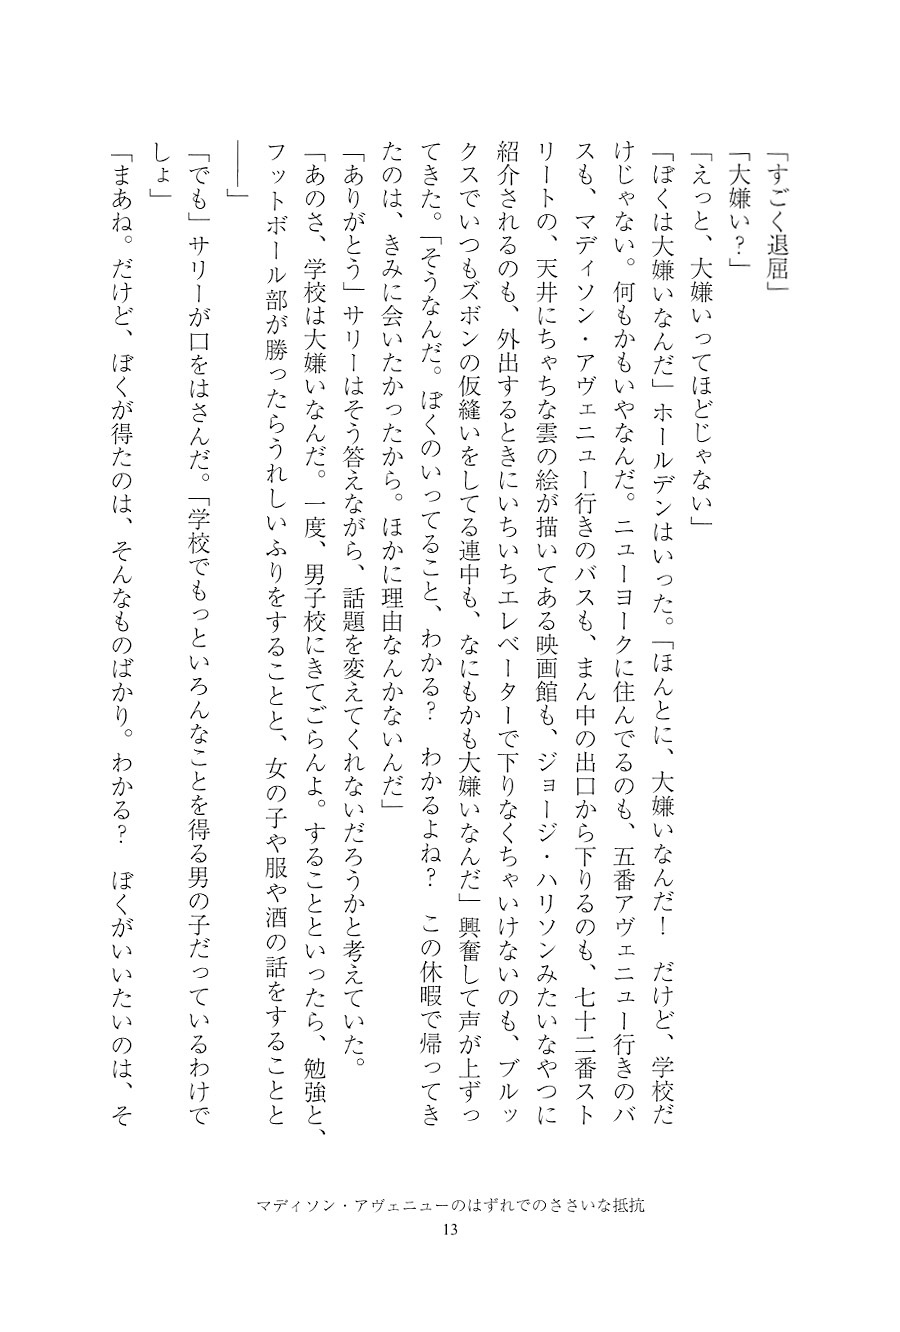 「すごく退屈」
「大嫌い？」
「えっと、大嫌いってほどじゃない」
「ぼくは大嫌いなんだ」ホールデンはいった。「ほんとに、大嫌いなんだ！　だけど、学校だ
けじゃない。何もかもいやなんだ。ニューヨークに住んでるのも、五番アヴェニュー行きのバ
スも、マディソン・アヴェニュー行きのバスも、まん中の出口から下りるのも、七十二番スト
リートの、天井にちゃちな雲の絵が描いてある映画館も、ジョージ・ハリソンみたいなやつに
紹介されるのも、外出するときにいちいちエレベーターで下りなくちゃいけないのも、ブルッ
クスでいつもズボンの仮縫いをしてる連中も、なにもかも大嫌いなんだ」興奮して声が上ずっ
てきた。「そうなんだ。ぼくのいってること、わかる？　わかるよね？　この休暇で帰ってき
たのは、きみに会いたかったから。ほかに理由なんかないんだ」
「ありがとう」サリーはそう答えながら、話題を変えてくれないだろうかと考えていた。
「あのさ、学校は大嫌いなんだ。一度、男子校にきてごらんよ。することといったら、勉強と、
フットボール部が勝ったらうれしいふりをすることと、女の子や服や酒の話をすることと
――」
「でも」サリーが口をはさんだ。「学校でもっといろんなことを得る男の子だっているわけで
しょ」
「まあね。だけど、ぼくが得たのは、そんなものばかり。わかる？　ぼくがいいたいのは、そ
マディソン・アヴェニューのはずれでのささいな抵抗
13